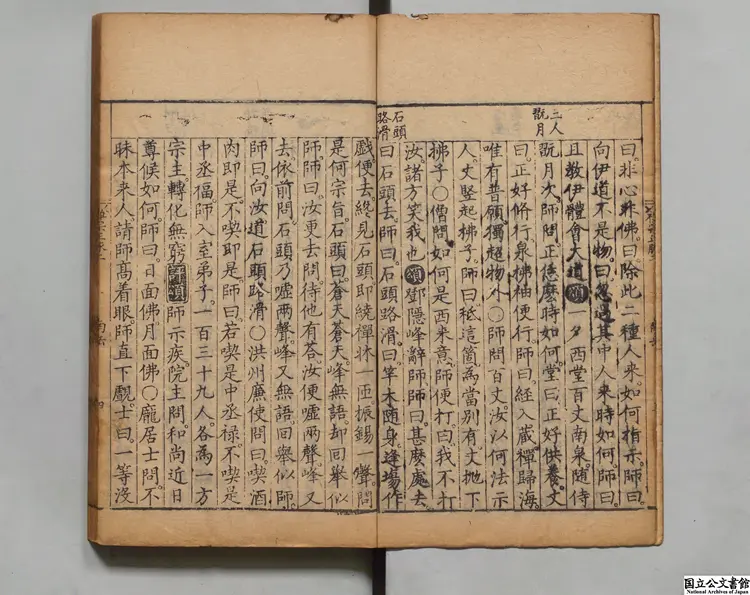 二人
翫月
曰非心非佛曰除此二種人来如何指示師曰
向伊道不是物曰忽遇其中人来時如何師曰
且教伊體會大道續一夕西堂百丈南泉随侍
翫月次師問正恁麽時如何堂曰正好供養丈
曰正好修行泉拂袖便行師曰經入藏禪歸海
唯有普願獨超物外○師問百丈汝以何法示
人丈竪起拂子師曰秪這箇為當別有丈抛下
拂子○僧問如何是西来意師便打曰我不打
汝諸方笑我也續鄧隱峰辭師師曰甚麽處去
石頭
路滑
曰石頭去師曰石頭路滑曰竿木随身逢場作
戲便去纔見石頭即繞禪牀一匝振錫一聲問
是何宗旨石頭曰蒼天蒼天峰無語却回舉似
師師曰汝更去問待他有荅汝便噓兩聲峰又
去依前問石頭乃噓兩聲峰又無語回舉似師
師曰向汝道石頭路滑○洪州廉使問曰喫酒
肉即是不喫即是師曰若喫是中丞禄不喫是
中丞福師入室弟子一百三十九人各為一方
宗主轉化無窮師示疾院主問和尚近日
尊候如何師曰日面佛月面佛○龐居士問不
昧本来人請師高着眼師直下覰士曰一等没
国立公文書館
National Archives of Japan